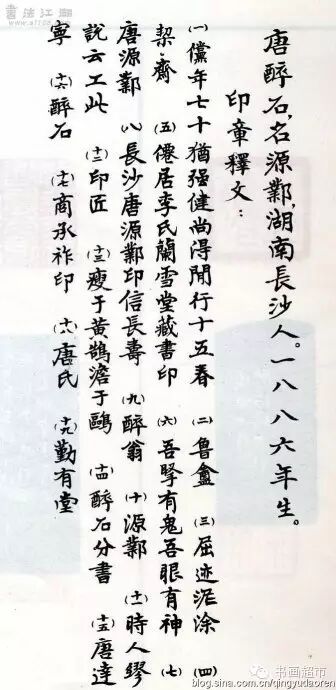 書法江湖
唐醉石，名源鄴，湖南長沙人。一八八六年生。
印章釋文：
㈠儻年七十猶强健尚得閒行十五春 ㈡魯盦 ㈢屈迹泥涂 ㈣
契·齋 ㈤僊居李氏蘭雪堂藏書印 ㈥吾擊有鬼吾眼有神 ㈦
唐源鄴 ㈧長沙唐源鄴印信長壽 ㈨醉翁 ㈩源鄴 (十一)時人繆
說云工此 (十二)印匠 (十三)瘦于黄鵠澹于鷗 (十四)醉石分書 (十五)唐達
寧 (十六)醉石 (十七)商承祚印 (十八)唐氏 (十九)勤有堂
书画超市
blog.sina.com.cn/qingyudaoren